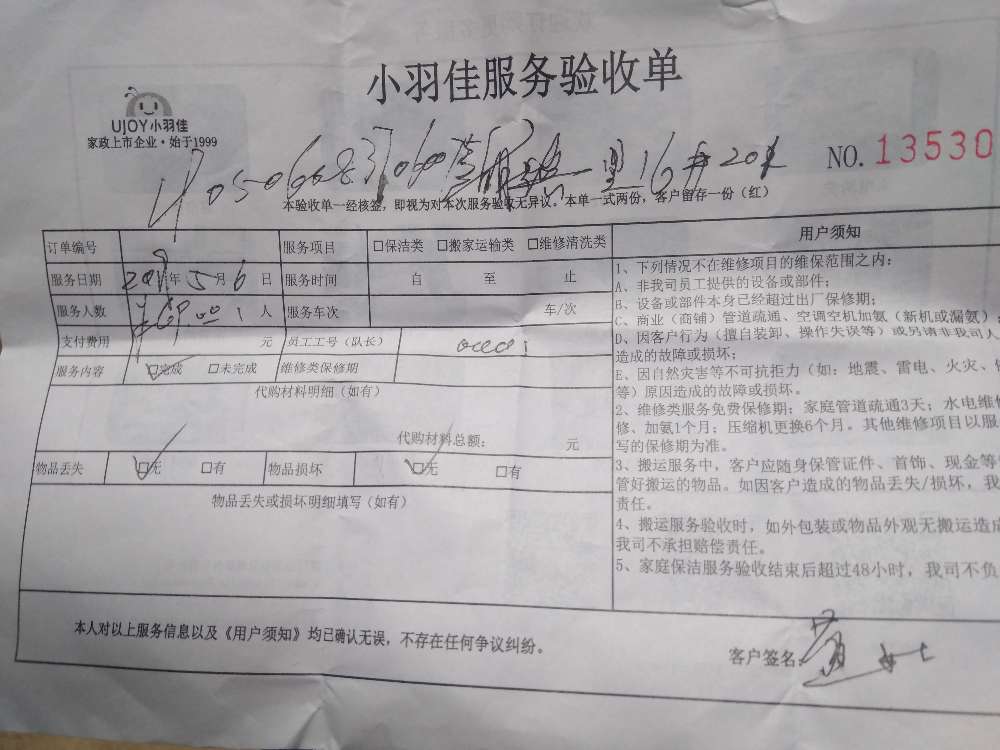 小羽佳服务验收单
UJOY小羽佳
家政上市企业·始于1999
NO. 13530
一里16 20
本验收单一经核签，即视为对本次服务验收无异议。本单一式两份，客户留存一份（红）
订单编号 服务项目 □保洁类 □搬家运输类 □维修清洗类
服务日期 年5月6日 服务时间 自 至 止
服务人数 1人 服务车次 车/次
支付费用 元 员工工号（队长）
服务内容 □完成 □未完成 维修类保修期
代购材料明细（如有）
代购材料总额： 元
物品丢失 □无 □有 物品损坏 □无 □有
物品丢失或损坏明细填写（如有）
用户须知
1、下列情况不在维修项目的维保范围之内：
A、非我司员工提供的设备或部件；
B、设备或部件本身已经超过出厂保修期；
C、商业（商铺）管道疏通、空调空机加氨（新机或漏氨）；
D、因客户行为（擅自装卸、操作失误等）或另请非我司人
造成的故障或损坏；
E、因自然灾害等不可抗拒力（如：地震、雷电、火灾、
等）原因造成的故障或损坏。
2、维修类服务免费保修期：家庭管道疏通3天；水电维
修、加氨1个月；压缩机更换6个月。其他维修项目以服
写的保修期为准。
3、搬运服务中，客户应随身保管证件、首饰、现金等
管好搬运的物品。如因客户造成的物品丢失/损坏，我
责任。
4、搬运服务验收时，如外包装或物品外观无搬运造成
我司不承担赔偿责任。
5、家庭保洁服务验收结束后超过48小时，我司不负
本人对以上服务信息以及《用户须知》均已确认无误，不存在任何争议纠纷。
客户签名：